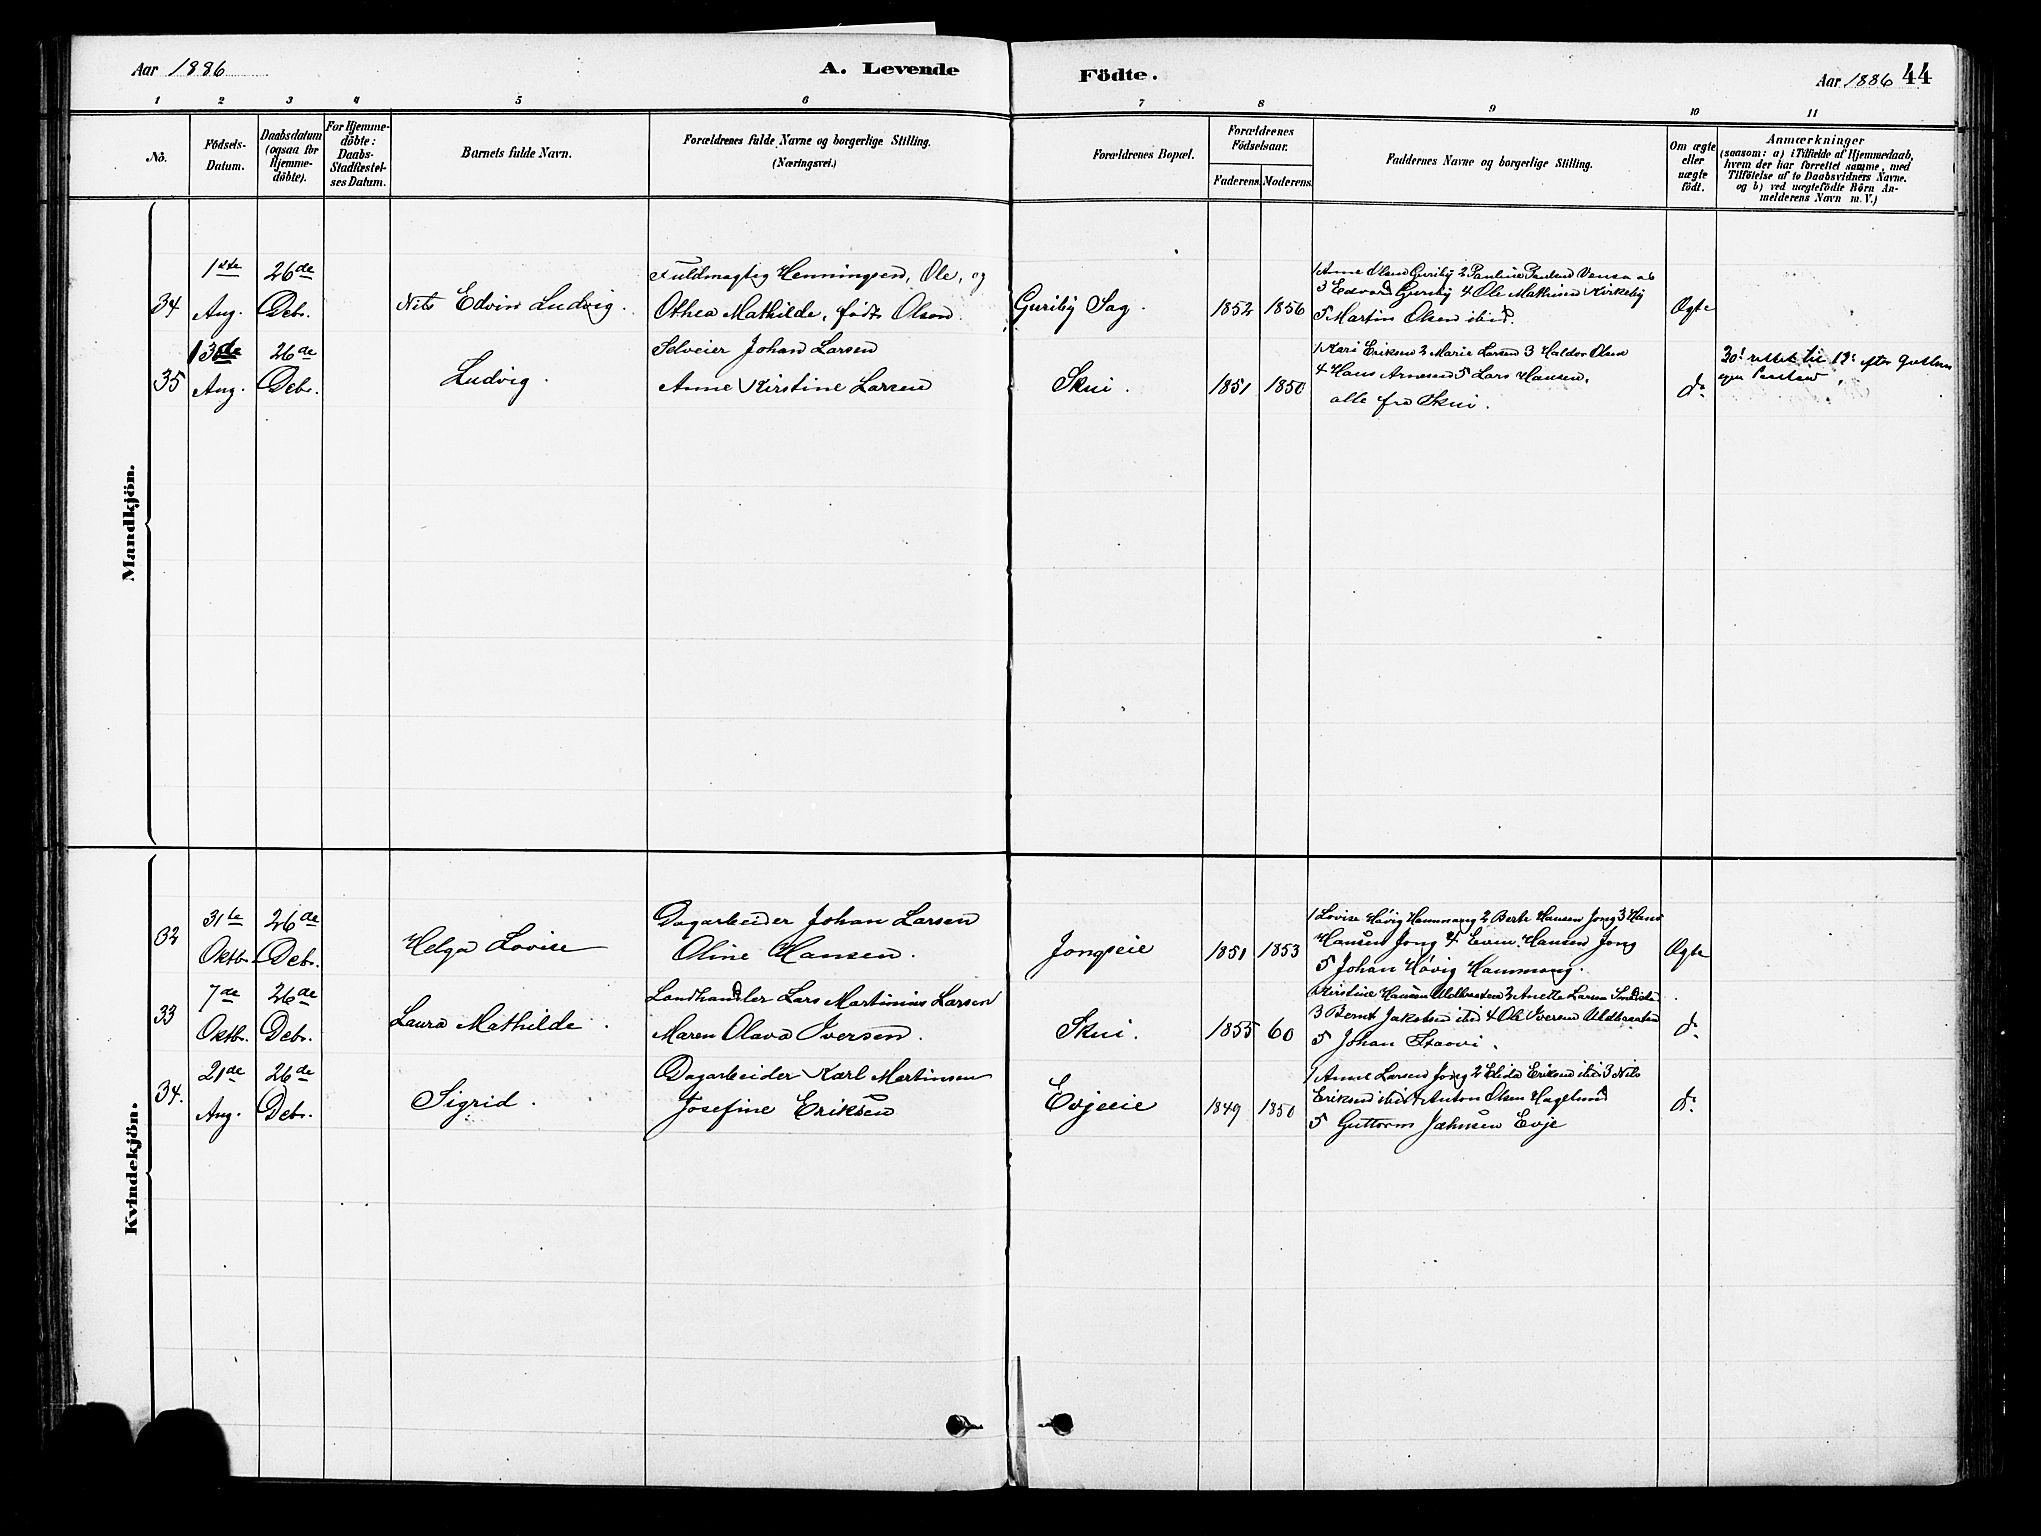 Aar 1886 A. Levende Födte. Aar 1886 44
1 2 3 4 5 6 7 8 9 10 11
No.
Födsels-
Datum.
Daabsdatum
(ogsaa for
Hjemme-
döbte).
For Hjemme-
döbte:
Daabs-
Stadfæstel-
ses Datum.
Barnets fulde Navn.
Forældrenes fulde Navne og borgerlige Stilling.
(Næringsvei.)
Forældrenes Bopæl.
Forældrenes
Födselsaar.
Faderens. Moderens.
Faddernes Navne og borgerlige Stilling.
Om ægte
eller
uægte
födt.
Anmærkninger
(saasom: a) i Tilfælde af Hjemmedaab,
hvem der har forrettet samme, med
Tilföielse af to Daabsvidners Navne.
og b) ved uægtefödte Börn An-
melderens Navn m. V.)
Mandkjön.
34
1ste
Aug.
26de
Debr.
Nils Edvin Ludvig.
Fuldmægtig Henningsen, Ole, og
Othea Mathilde, födt Olsen.
Guriby Sag.
1852 1856
1 Anne Olsen Guriby 2 Pauline Paulsen
3 Edvard Guriby 4 Ole Mathisen Kirkeby
5 Martin Olsen ibid.
Ægte
35
13de
Aug.
26de
Debr.
Ludvig.
Selveier Johan Larsen
Anne Kirstine Larsen
Skui.
1851 1850
1 Kari Eriksen 2 Marie Larsen 3 Haldor Olsen
4 Hans Arnesen 5 Lars Hansen,
alle fra Skui.
do
30 rettet til 13 efter
Kvindekjön.
32
31te
Oktbr.
26de
Debr.
Helga Lovise
Dagarbeider Johan Larsen
Oline Hansen.
Jongseie
1851 1853
1 Lovise Hövig Hammang 2 Berte Hansen Jong 3 Hans
Hansen Jong 4 Even Hansen Jong
5 Johan Hövig Hammang.
Ægte
33
7de
Oktbr.
26de
Debr.
Laura Mathilde.
Landhandler Lars Martinius Larsen
Maren Olava Iversen.
Skui.
1855 60
1 Kirstine Hansen 2 Anette Larsen
3 Bernt Jakobsen ibid 4 Ole Iversen
5 Johan Staovi.
do
34.
21de
Aug.
26de
Debr.
Sigrid.
Dagarbeider Karl Martinsen
Josefine Eriksen
Evjeeie
1849 1850
1 Anne Larsen Jong 2 Eriksen ibid 3 Nils
Eriksen ibid 4 Anton Olsen Hagelund
5 Guttorm Jahnsen Evje
do